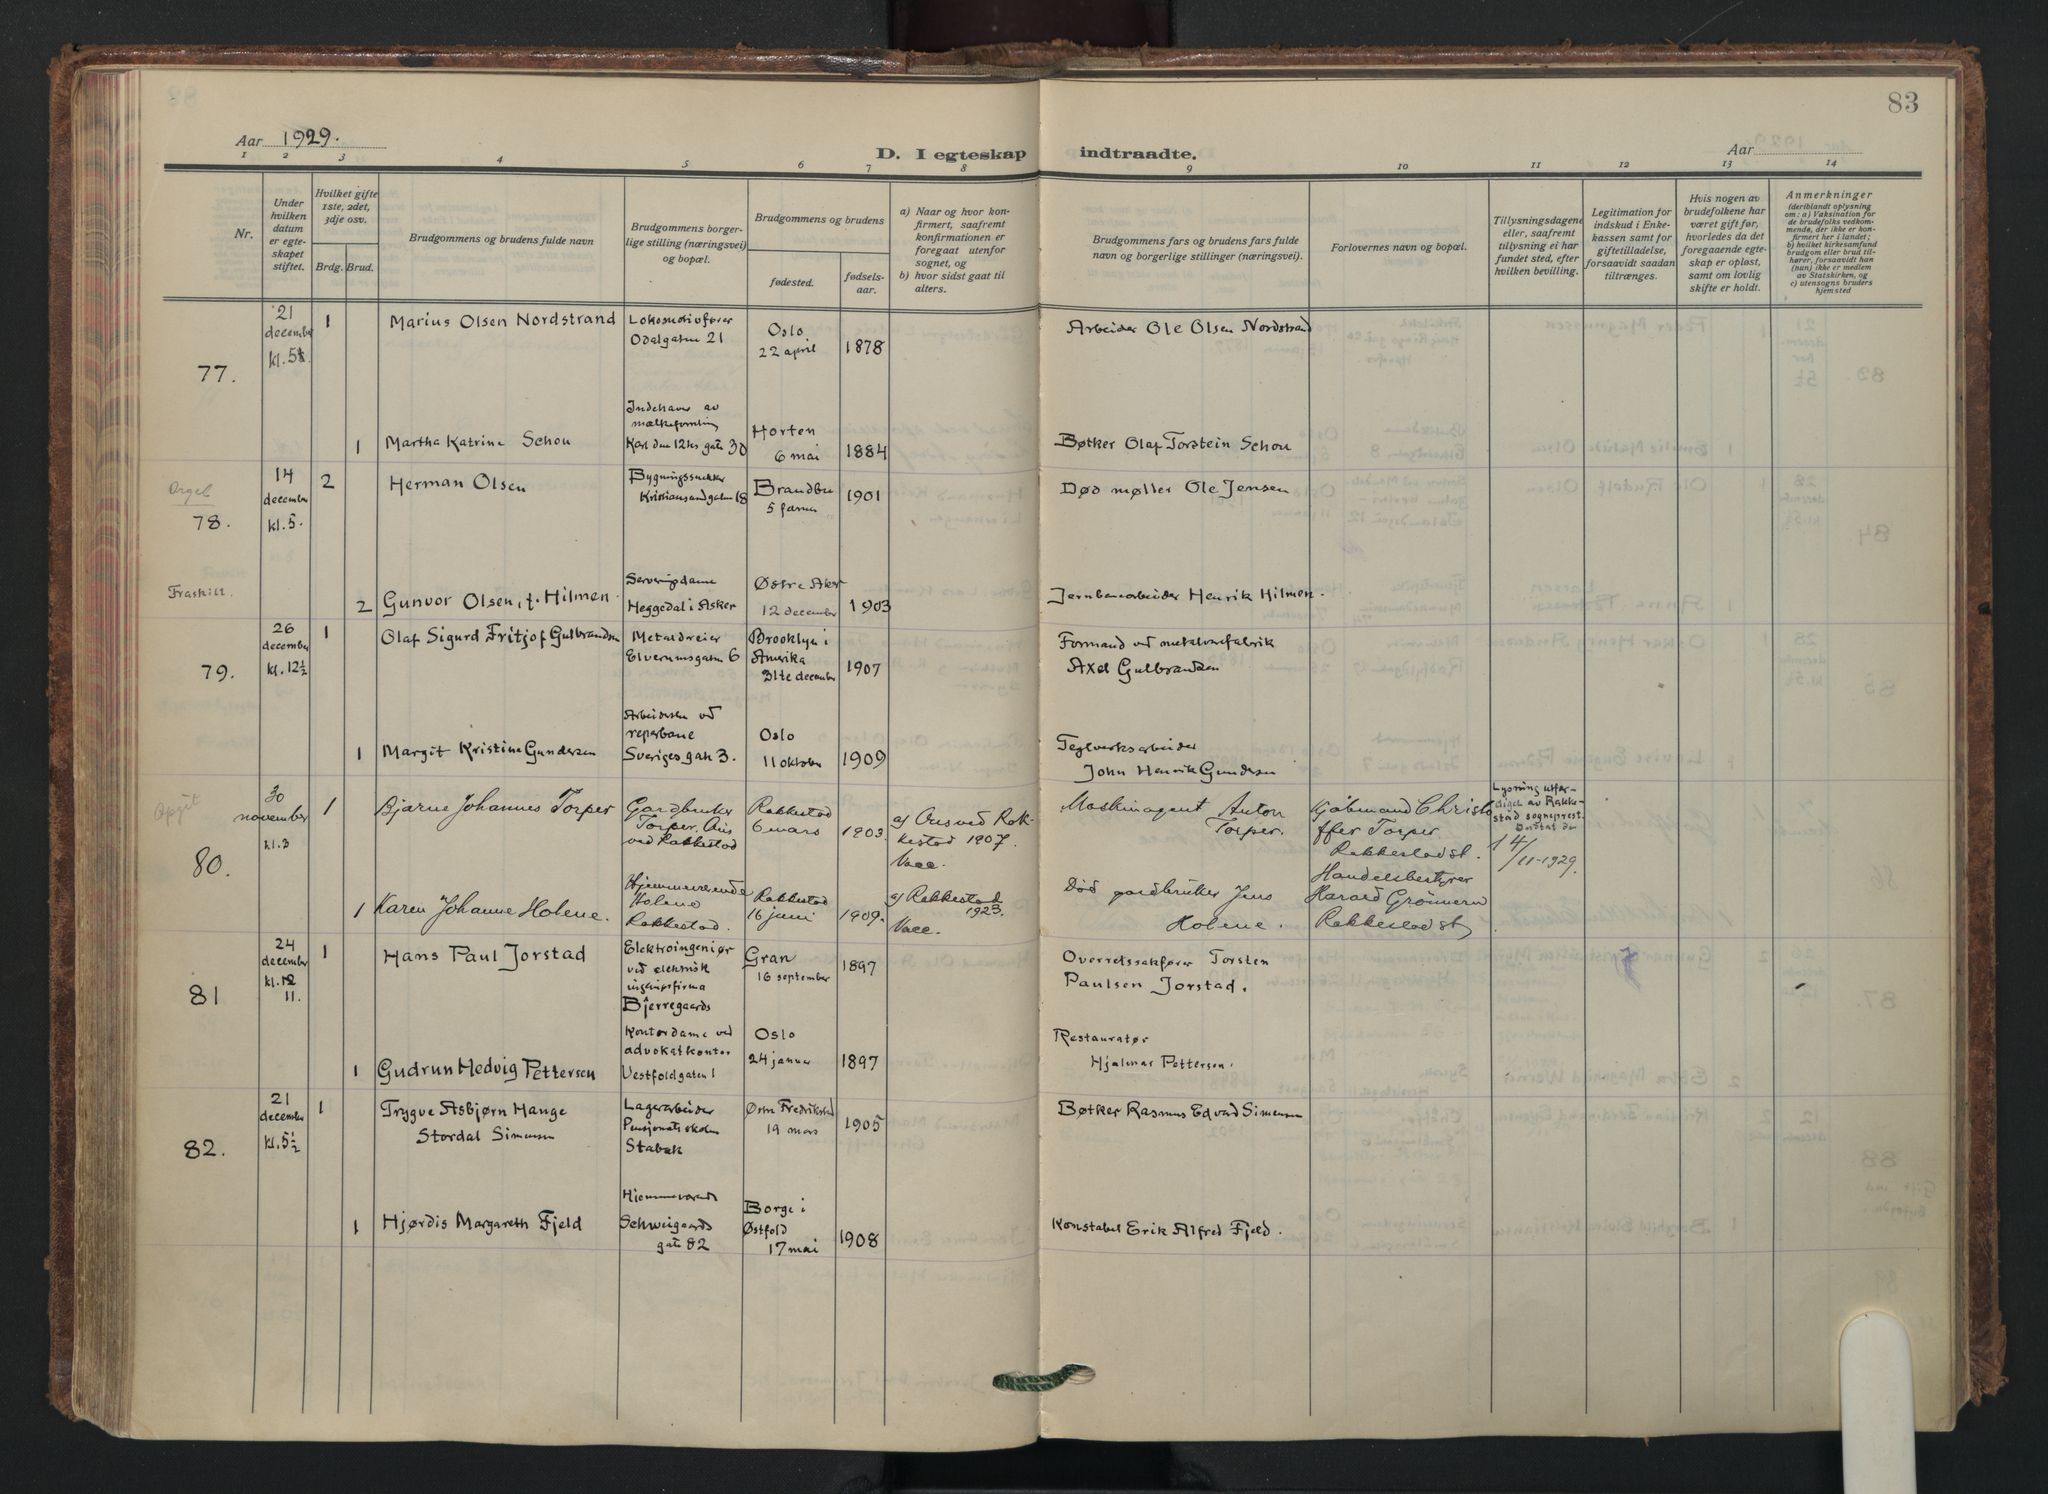 83
Aar 1929.
D. I egteskap indtraadte.
Aar
1 2 3 4 5 6 7 8 9 10 11 12 13 14
Nr.
Under hvilken datum er egteskapet stiftet.
Hvilket gifte 1ste, 2det, 3dje osv.
Brdg. Brud.
Brudgommens og brudens fulde navn
Brudgommens borgerlige stilling (næringsvei) og bopæl.
Brudgommens og brudens
fødested.
fødselsaar.
a) Naar og hvor konfirmert, saafremt konfirmationen er foregaat utenfor sognet, og
b) hvor sidst gaat til alters.
Brudgommens fars og brudens fars fulde navn og borgerlige stillinger (næringsvei).
Forlovernes navn og bopæl.
Tillysningsdagene eller, saafremt tillysning ei har fundet sted, efter hvilken bevilling.
Legitimation for indskud i Enkekassen samt for giftetilladelse, forsaavidt saadan tiltrænges.
Hvis nogen av brudefolkene har været gift før, hvorledes da det foregaaende egteskap er opløst, samt om lovlig skifte er holdt.
Anmerkninger
(deriblandt oplysning om: a) Vaksination for de brudefolks vedkommende, der ikke er konfirmert her i landet; b) hvilket kirkesamfund brudgom eller brud tilhører, forsaavidt han (hun) ikke er medlem av Statskirken, og c) utensogns bruders hjemsted
77.
21 december kl. 5
1
Marius Olsen Nordstrand
Lokomotivfører
Odalgaten 21
Oslo
22 april
1878
Arbeider Ole Olsen Nordstrand
1
Martha Katrine Schou
Indehaver av
Karl den 12tes gate 30
Horten
6 mai
1884
Bøtker Olaf Torstein Schou
Orgel
78.
14 december kl. 5.
2
Herman Olsen
Bygningssnekker
Kristiansandgaten 18
Brandbu
5
1901
Død møller Ole Jensen
Fraskilt.
2
Gunvor Olsen, f. Hilmen.
Serveringsdame
Heggedal i Asker
Østre Aker
12 december
1903
Jernbanearbeider Henrik Hilmen.
79.
26 december kl. 12½
1
Olaf Sigurd Fritjof Gulbrandsen
Metaldreier
Elverumsgaten 6
Brooklyn i
Amerika
31te december
1907
Formand ved metalvarefabrik
Axel Gulbrandsen
1
Margit Kristine Gundersen
Arbeiderske ved
reperbane
Sveriges gate 3.
Oslo
11 oktober
1909
Teglverksarbeider
John Henrik Gundersen
Opgit
80.
30 november kl. 3
1
Bjarne Johannes Torper
Gardbruker
Torper. Ous
ved Rakkestad
Rakkestad
6 mars
1903.
a) Ous ved Rakkestad 1907.
Maskinagent Anton
Torper.
Kjøbmand Christoffer Torper.
Rakkestad st.
Lysning utferdiget av Rakkestad sogneprest.
14/11-1929.
1
Karen Johanne Holene.
Hjemmeværende
Holene
Rakkestad.
Rakkestad
16 juni
1909.
a) Rakkestad
1923.
Død gardbruker Jens
Holene.
Handelsbestyrer
Harald Grönnern
Rakkestad st
81
24 december kl. 12 11.
1
Hans Paul Jorstad
Elektroingeniør
ved elektrisk
Bjerregaards
Gran
16 september
1897
Overretssakfører Torsten
Paulsen Jorstad.
1
Gudrun Hedvig Pettersen
Kontordame ved
advokatkontor
Vestfoldgaten 1
Oslo
24 januar
1897
Restauratør
Hjalmar Pettersen.
82.
21 december kl. 5½
1
Trygve Asbjørn Hauge
Stordal Simensen
Lagerarbeider
Pensjonatskolen
Stabæk
Østre Fredrikstad
19 mars
1905
Bøtker Rasmus Edvard Simensen
1
Hjørdis Margareth Fjeld
Hjemmeværende
Schweigaards
gate 82
Borge i
Østfold
17 mai
1908
Konstabel Erik Alfred Fjeld.